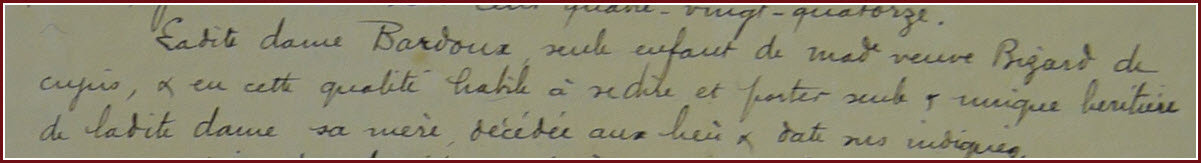 cent quatre-vingt-quatorze.
Ladite dame Bardoux, seule enfant de madᵉ veuve Bizard de
cujus, & en cette qualité habile à se dire et porter seule & unique heritière
de ladite dame sa mère, décédée aux lieu & date sus indiqués.